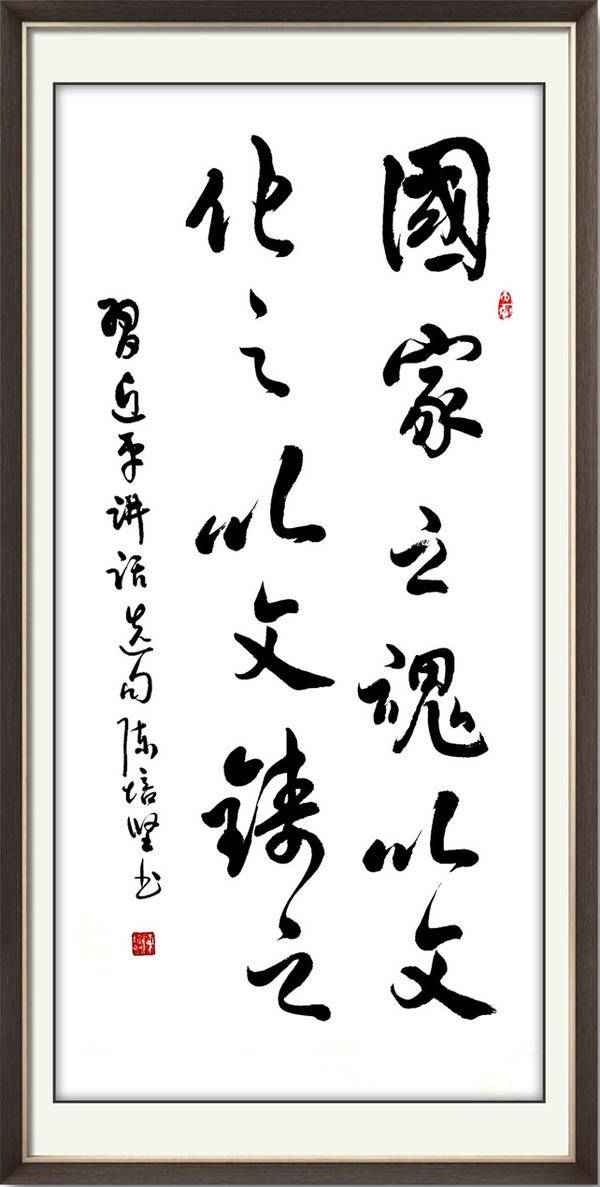 國家之魂以文
化之以文鑄之
習近平講话选句陈培坚书